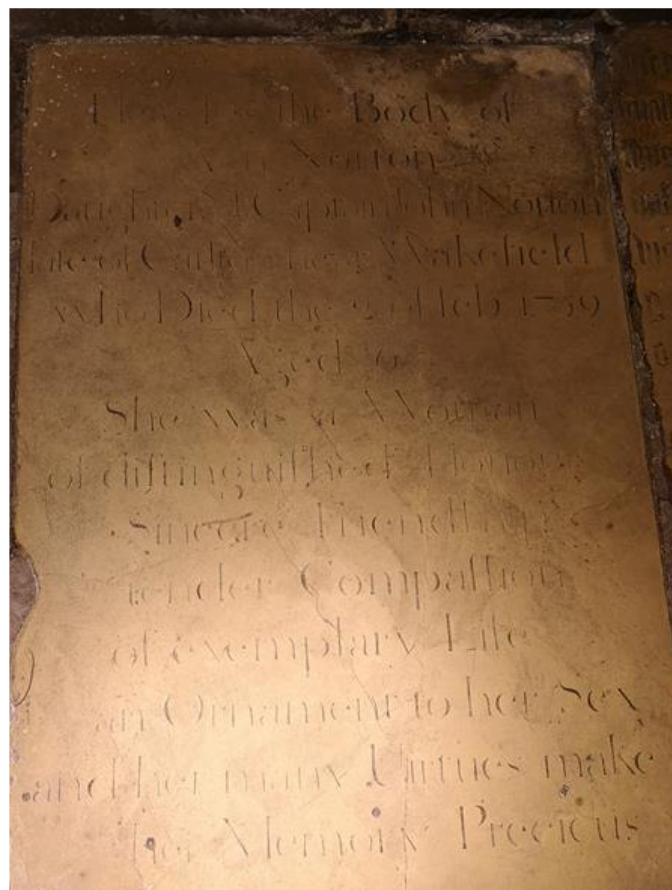 the Body of
Norton
Daughter of Captain John Norton
late of near Wakefield
who Died the 2 of Feb 1739
Aged
She was a Woman
of diſtinguiſhed Honour
Sincere Friendſhip
tender Compaſſion
of exemplary Life
an Ornament to her Sex
and her many Virtues make
her Memory Precious